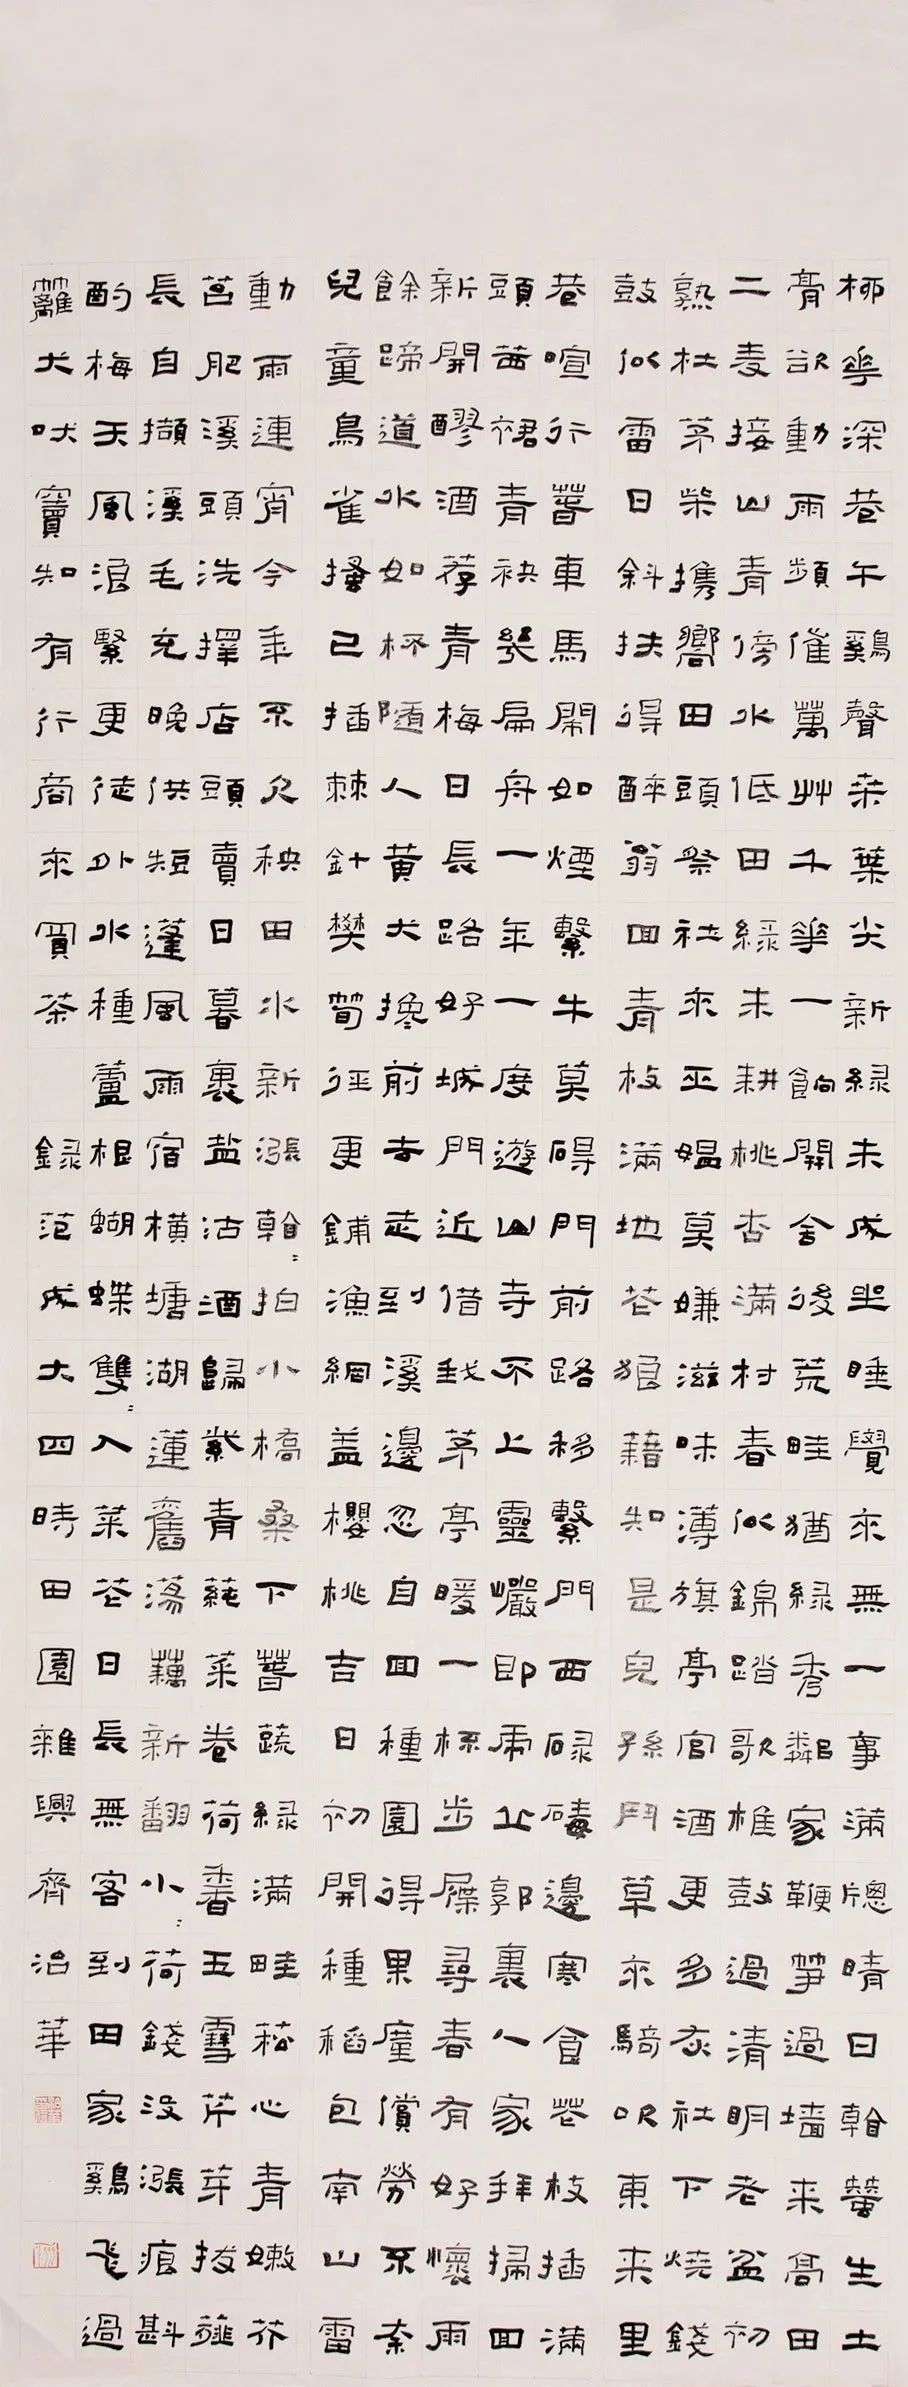 柳華深巷午雞聲桑葉尖新緑未成坐睡覺來無一事滿牕晴日看蠶生土
膏欲動雨頻催萬艸千華一餉開舍後荒畦猶緑秀鄰家鞭筍過墻来高田
二麦接山青傍水低田緑未耕桃杏滿村春似錦踏歌椎鼓過清明老盆初
熟杜茅柴携嚮田頭祭社來巫媼莫嫌滋味薄旗亭官酒更多灰社下燒錢
鼓似雷日斜扶得醉翁回青枝滿地花狼藉知是兒孫鬥草來騎吹東来里
巷喧行萅車馬閙如煙繫牛莫碍門前路移繫門西碌碡邊寒食花枝插滿
頭茜裙青袂幾扁舟一年一度遊山寺不上靈巖即虎丘郭裏人家拜掃回
新開醪酒荐青梅日長路好城門近借我茅亭暖一杯步屧尋春有好懷雨
餘蹄道水如杯隨人黃犬攙前去走到溪邊忽自回種園得果廑償勞不奈
兒童鳥雀搔已插棘針樊筍徑更鋪漁網盖櫻桃吉日初開種稻包南山雷
動雨連宵今年不欠秧田水新漲看〻拍小橋桑下萅蔬緑滿畦菘心青嫩芥
苔肥溪頭洗擇店頭賣日暮裹盐沽酒歸紫青蒓菜卷荷香玉雪芹芽拔薤
長自擷溪毛充晚供短蓬風雨宿橫塘湖蓮舊蕩藕新翻小〻荷錢没漲痕斟
酌梅天風浪緊更從外水種蘆根蝴蝶雙〻入菜花日長無客到田家雞飛過
籬犬吠竇知有行商來買茶 録范成大四時田園雜興齊治華